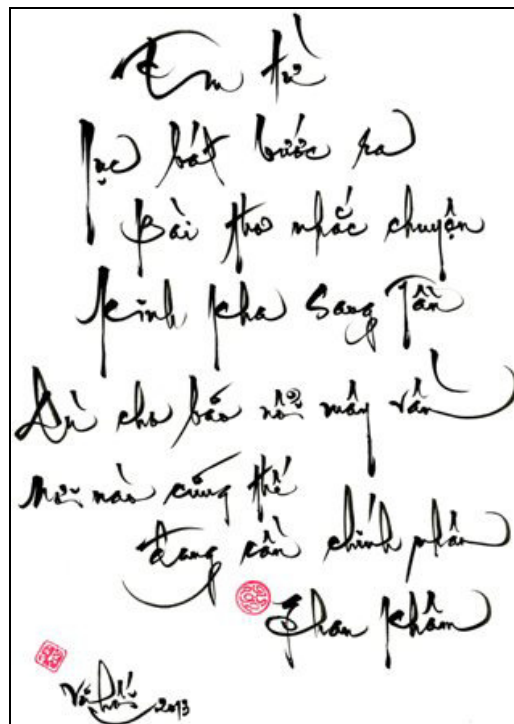 Em từ
lục bát bước ra
Bài thơ nhắc chuyện
Kinh Kha sang Tần
Dù cho bão nổi mây vần
Nơi nào cũng thế
đang cần chính nhân
Phan Khâm
2013